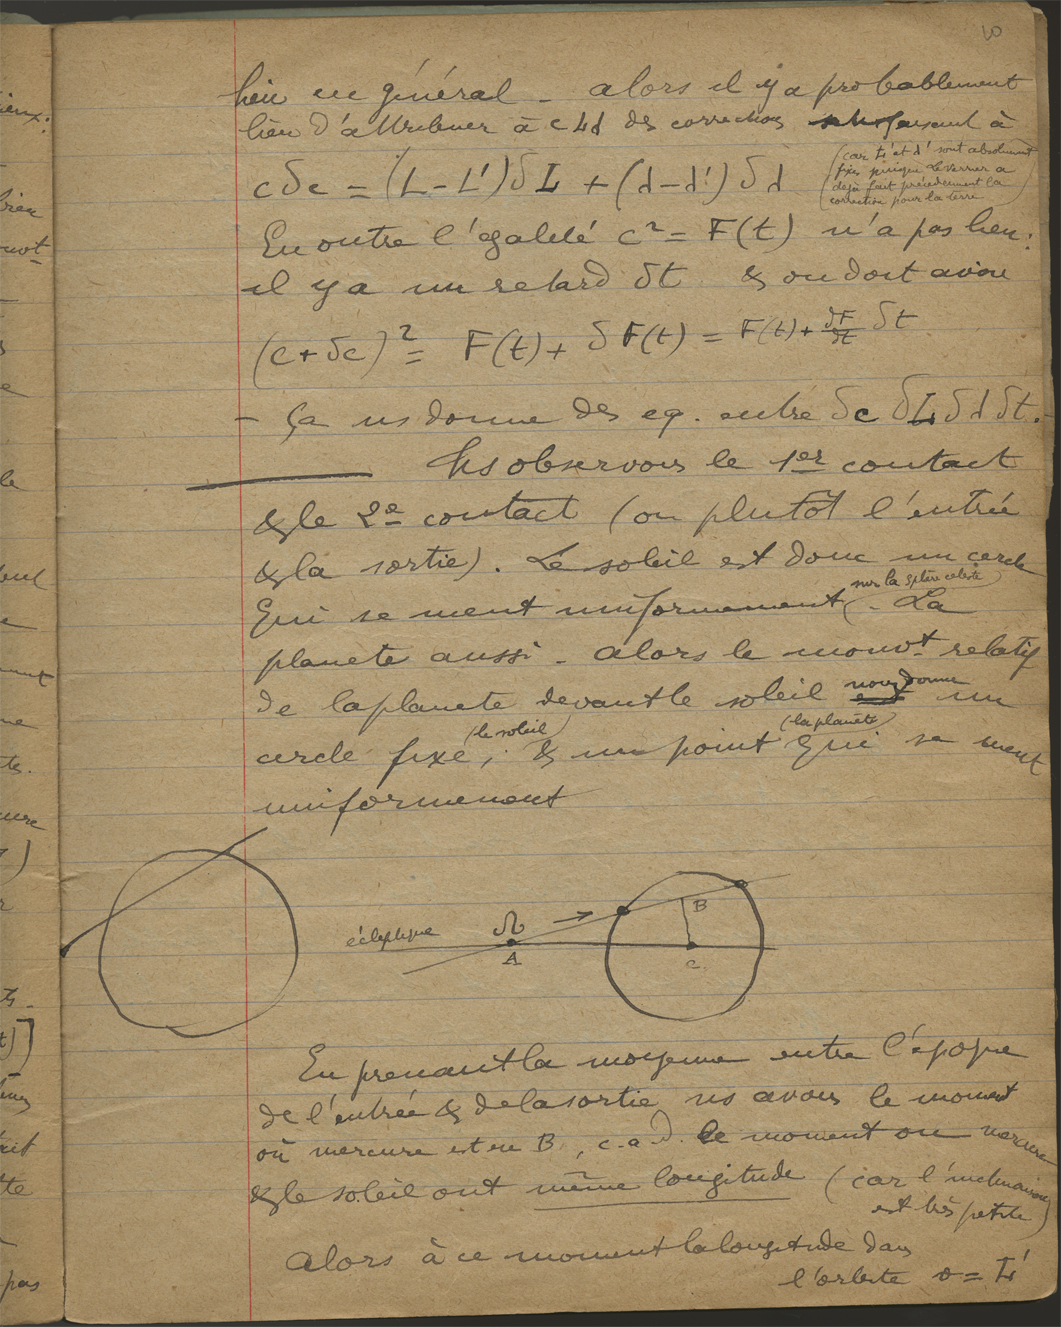 10
lieu en général _ alors il y a probablement
lieu d'attribuer à c L λ des corrections satisfaisant à
c δc = (L - L') δL + (λ - λ') δλ
(car L' et λ' sont absolument
fixes puisque Leverrier a
déjà fait précédemment la
correction pour la terre
En outre l'égalité c² = F(t) n'a pas lieu :
il y a un retard δt & on doit avoir
(c + δc)² = F(t) + δF(t) = F(t) + dF/dt δt
- Ça ns donne des eq. entre δc δL δλ δt. -
Ns observons le 1er contact
& le 2e contact (ou plutôt l'entrée
& la sortie). Le soleil est donc un cercle
sur la sphère céleste
qui se meut uniformément . La
planete aussi - alors le mouvt relatif
de la planete devant le soleil nous donne un
(le soleil) (la planète)
cercle fixe, & un point qui se meut
uniformement
écliptique ☊ A B C
En prenant la moyenne entre l'époque
de l'entrée & de la sortie ns avons le moment
où mercure est en B, c.a.d. le moment ou mercure
& le soleil ont même longitude (car l'inclinaison
est très petite)
Alors à ce moment la longitude dans
l'orbite v = L'